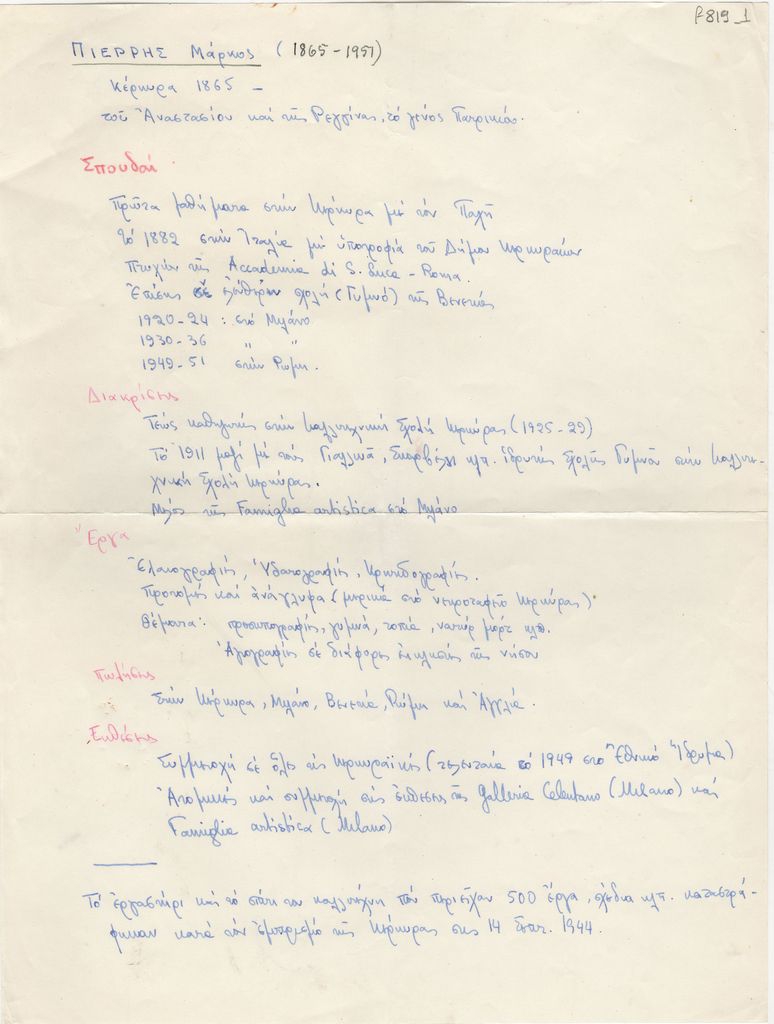 F819_1
ΠΙΕΡΡΗΣ Μάρκος (1865-1951)
Κέρκυρα 1865 –
τοῦ Ἀναστασίου καί τῆς Ρεγγίνας, τό γένος Πατρικίου.
Σπουδαί
Πρῶτα μαθήματα στήν Κέρκυρα μέ τόν Παχῆ
Τό 1882 στήν Ἰταλία μέ ὑποτροφία τοῦ Δήμου Κερκυραίων
Πτυχίον τῆς Accademia di S. Luca - Roma.
Ἐπίσης σέ ἐλευθέραν σχολή (Γυμνό) τῆς Βενετίας
1920-24 : στό Μιλάνο
1930-36 " "
1949-51 στήν Ρώμη.
Διακρίσεις
Τέως καθηγητής στήν Καλλιτεχνική Σχολή Κερκύρας (1925-29)
Τό 1911 μαζί μέ τούς Γιαλλινᾶ, Σκαρβέλη κλπ. ἱδρυτής Σχολῆς Γυμνοῦ στήν Καλλιτε-
χνική Σχολή Κερκύρας.
Μέλος τῆς Famiglia artistica στό Μιλάνο
Ἔργα
Ἐλαιογραφίες, Ὑδατογραφίες, Κρητιδογραφίες.
Προτομές καί ἀνάγλυφα (μερικά στό νεκροταφεῖο Κερκύρας)
Θέματα: προσωπογραφίες, γυμνά, τοπία, νατύρ μόρτ κλπ.
Ἁγιογραφίες σέ διάφορες ἐκκλησίες τῆς νήσου
Πωλήσεις
Στήν Κέρκυρα, Μιλάνο, Βενετία, Ρώμη καί Ἀγγλία.
Ἐκθέσεις
Συμμετοχή σέ ὅλες τίς Κερκυραϊκές (τελευταία τό 1949 στό Ἐθνικό Ἵδρυμα)
Ἀτομικές καί συμμετοχή σέ ἐκθέσεις τῆς Galleria Celentano (Milano) καί
Famiglia artistica (Milano)
Τό ἐργαστήρι καί τό σπίτι του καλλιτέχνη πού περιεῖχαν 500 ἔργα, σχέδια κλπ. καταστρά-
φηκαν κατά τόν ἐμπρησμό τῆς Κερκύρας στις 14 Σεπτ. 1944.